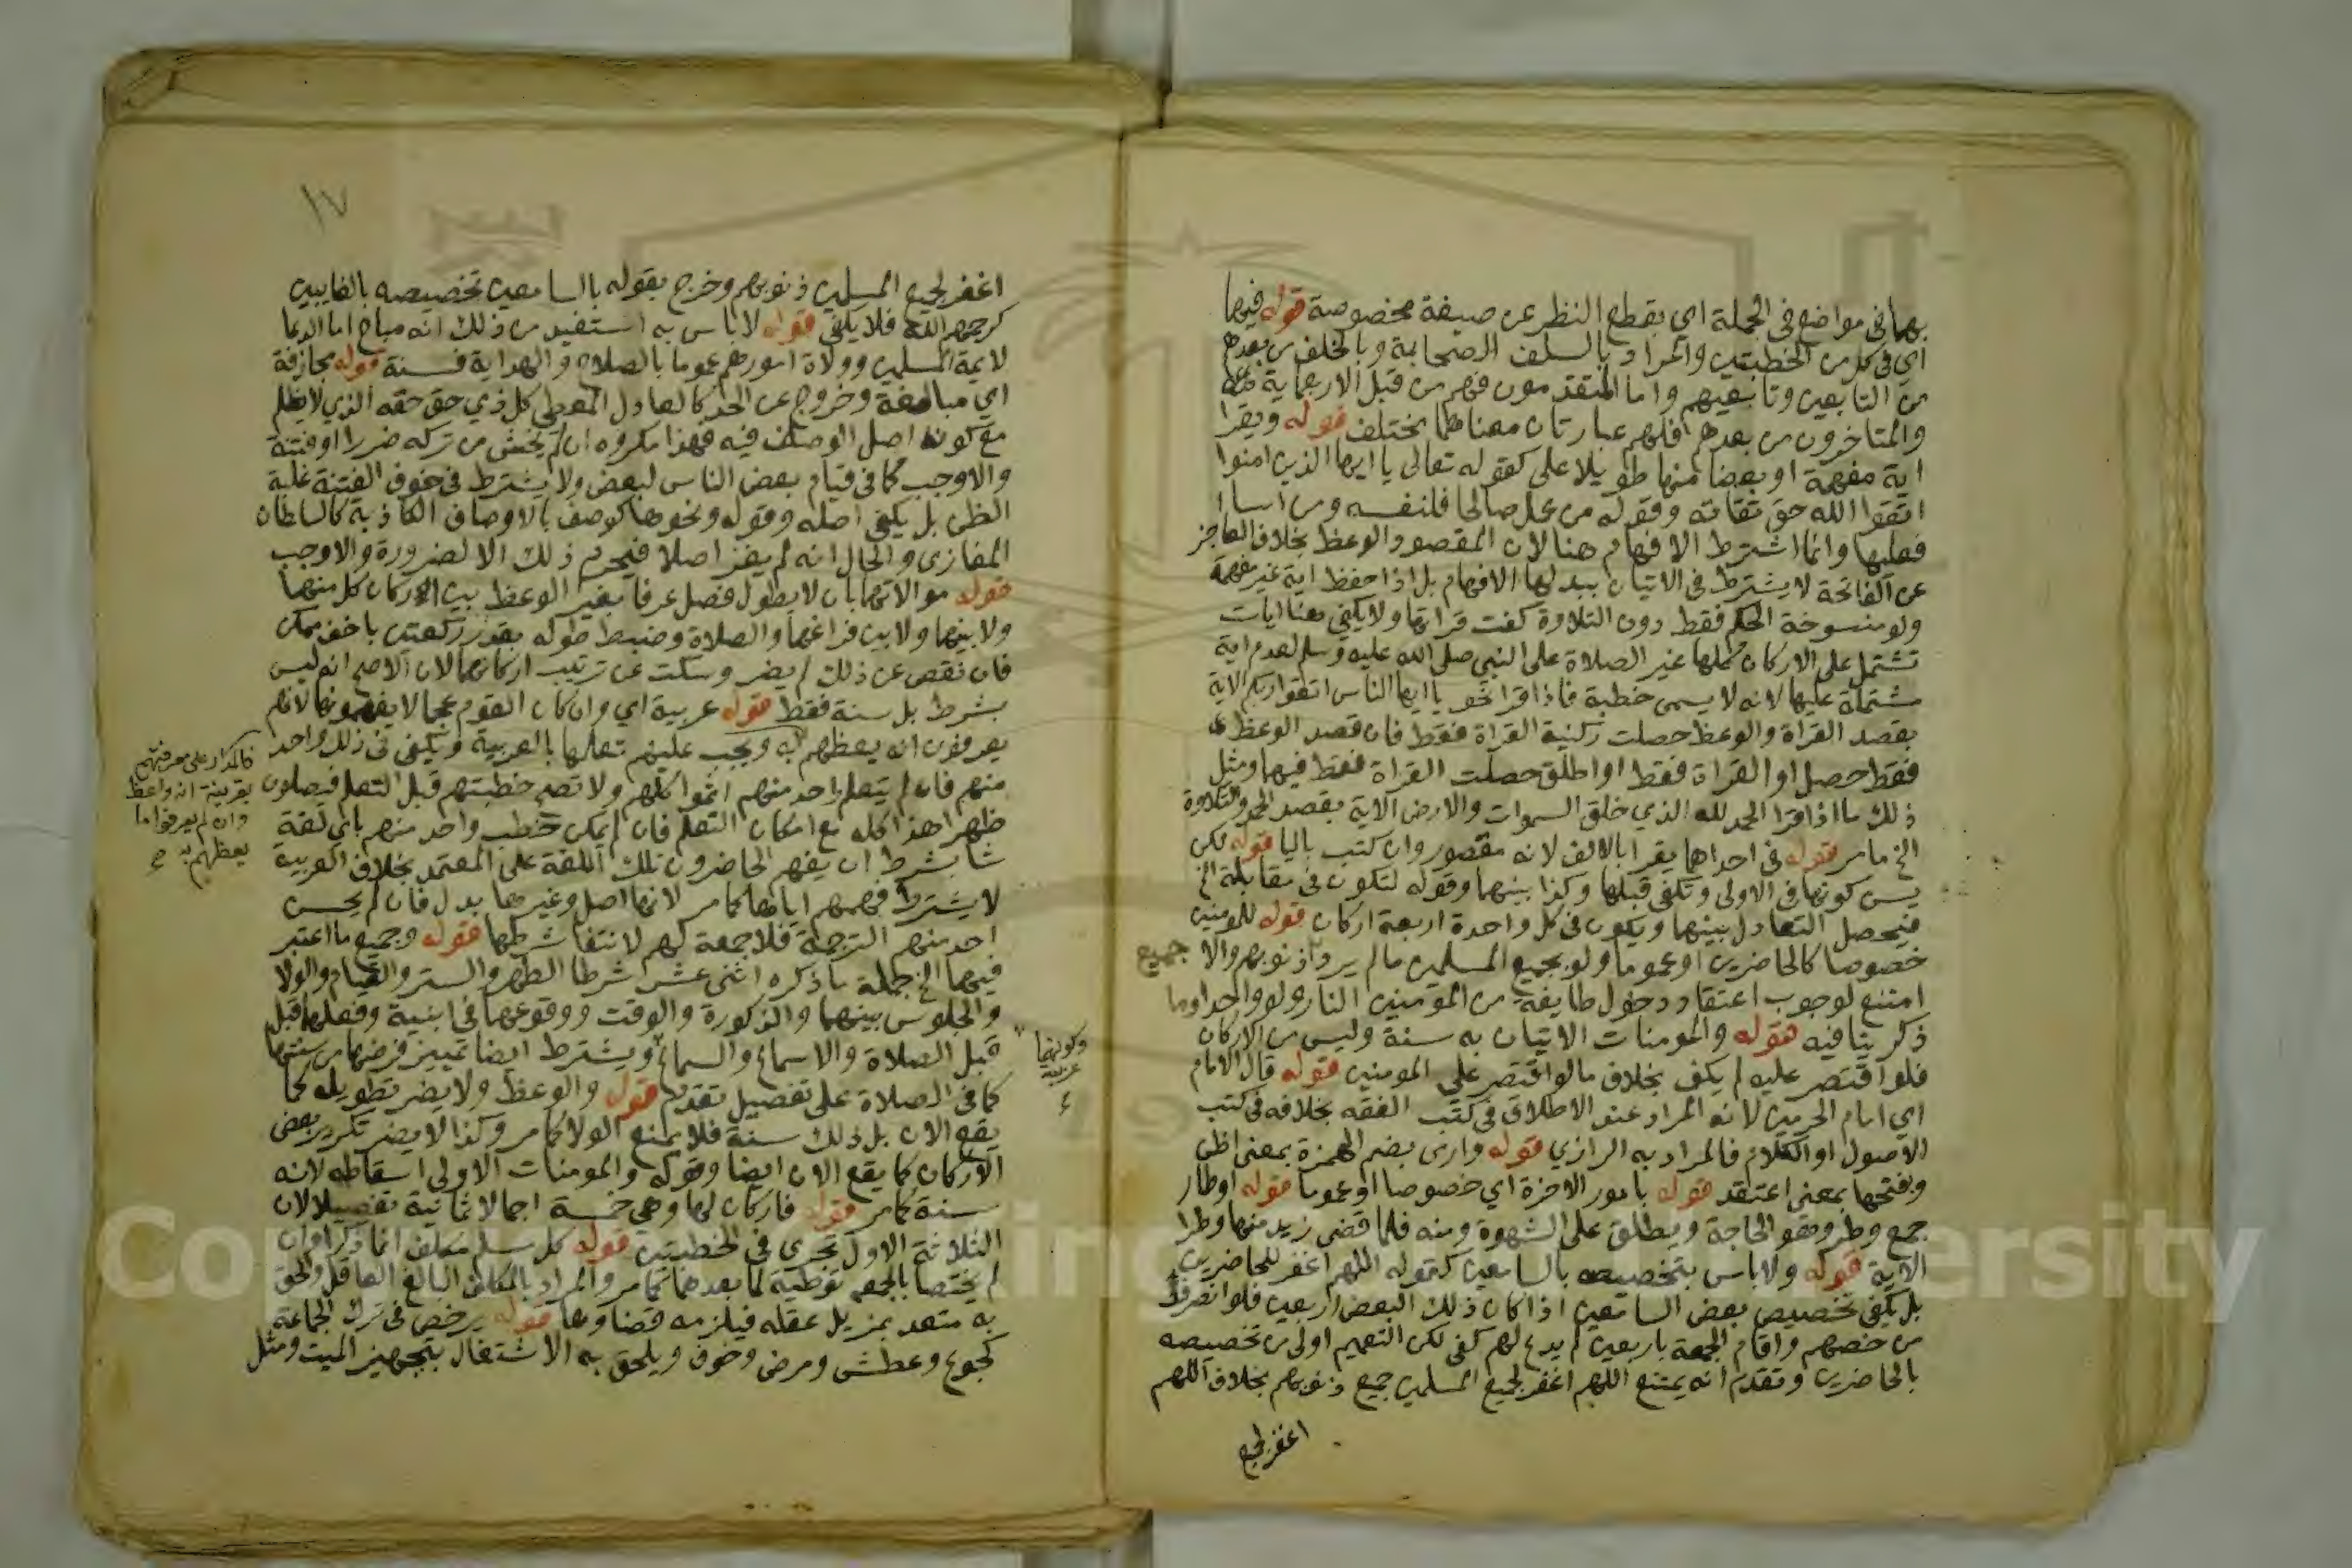 بهما في مواضع في الجملة اي بقطع النظر عن صيغة مخصوصة قوله فيهما
اي في كل من الخطبتين والمراد بالسلف الصحابة وبالخلف من بعدهم
من التابعين وتابعيهم واما المتقدمون فهم من قبل الاربعماية
والمتاخرون من بعدهم فلهم عبارتان معناهما مختلف قوله ويقرا
اية مفهمة او بعضا منها طويلا على كقوله تعالى يا ايها الذين امنوا
اتقوا الله حق تقاته وقوله من عمل صالحا فلنفسه ومن اسا
فعليها وانما اشترط الافهام هنا لان المقصود الوعظ بخلاف العاجز
عن الفاتحة لا يشترط في الاتيان ببدلها الافهام بل اذا حفظ اية غير مفهمة
ولو منسوخة الحكم فقط دون التلاوة كفت قراتها ولا يكفي هنا ايات
تشتمل على الاركان كلها غير الصلاة على النبي صلى الله عليه وسلم لعدم اية
مشتملة عليها لانه لا يسمى خطبة فاذا قرا نحو يا ايها الناس اتقوا ربكم الاية
بقصد القراة والوعظ حصلت ركنية القراة فقط فان قصد الوعظ
فقط حصل او القراة فقط او اطلق حصلت القراة فقط فيها ومثل
ذلك ما اذا قرا الحمد لله الذي خلق السموات والارض الاية بقصد الحمد والتلاوة
الخ ما مر قوله في احداهما يقرا بالالف لانه مقصور وان كتب باليا قوله لكن
يسن كونها في الاولى وتكفي قبلها وكذا بينهما وقوله لتكون في مقابلة الخ
فيحصل التعادل بينهما ويكون في كل واحدة اربعة اركان قوله للمومنين
خصوصا كالحاضرين او عموما ولو بجميع المسلمين ما لم يرد ذنوبهم والا
جميع
امتنع لوجوب اعتقاد دخول طايفة من المومنين النار ولو واحدا وما
ذكر ينافيه قوله والمومنات الاتيان به سنة وليس من الاركان
فلو اقتصر عليه لم يكف بخلاف ما لو اقتصر على المومنين قوله قال الامام
اي امام الحرمين لانه المراد عند الاطلاق في كتب الفقه بخلافه في كتب
الاصول او الكلام فالمراد به الرازي قوله وارى بضم الهمزة بمعنى اظن
وبفتحها بمعنى اعتقد قوله بامور الاخرة اي خصوصا او عموما قوله اوطار
جمع وطر وهو الحاجة ويطلق على الشهوة ومنه فلما قضى زيد منها وطرا
الاية قوله ولا باس بتخصيصه بالسامعين كقوله اللهم اغفر للحاضرين
بل يكفي تخصيص بعض السامعين اذا كان ذلك البعض اربعين فلو انصرف
من خصهم واقام الجمعة باربعين لم يدع لهم كفى لكن التعميم اولى من تخصيصه
بالحاضرين وتقدم انه يمتنع اللهم اغفر لجميع المسلمين جميع ذنوبهم بخلاف اللهم
اغفر لجميع
١٧
اغفر لجميع المسلمين ذنوبهم وخرج بقوله بالسامعين تخصيصه بالغايبين
كرحمهم الله فلا يكفي قوله لا باس به استفيد من ذلك انه مباح اما الدعا
لايمة المسلمين وولاة امورهم عموما بالصلاح والهداية فسنة قوله مجازفة
اي مبالغة وخروج عن الحد كالعادل المعطي كل ذي حق حقه الذي لا يظلم
مع كونه اصل الوصف فيه فهذا مكروه ان لم يخش من تركه ضررا او فتنة
والا وجب كما في قيام بعض الناس لبعض ولا يشترط في خوف الفتنة غلبة
الظن بل يكفي اصله وقوله ونحوها كوصف بالاوصاف الكاذبة كالسلطان
المغازي والحال انه لم يغز اصلا فيحرم ذلك الا لضرورة والا وجب
قوله موالاتهما بان لا يطول فصل عرفا بغير الوعظ بين اركان كل منهما
ولا بينهما ولا بين فراغهما والصلاة وضبط طوله بقدر ركعتين باخف ممكن
فان نقص عن ذلك لم يضر وسكت عن ترتيب اركانهما لان الاصح انه ليس
بشرط بل سنة فقط قوله عربية اي وان كان القوم عجما لا يفهمونها لانهم
يعرفون انه يعظهم ويجب عليهم تعلمها بالعربية ويكفي في ذلك واحد
منهم فان لم يتعلم احد منهم اثموا كلهم ولا تصح خطبتهم قبل التعلم فيصلون
ظهرا هذا كله مع امكان التعلم فان لم يمكن خطب واحد منهم باي لغة
شا بشرط ان يفهم الحاضرون تلك اللغة على المعتمد بخلاف العربية
لا يشترط فهمهم اياها كما مر لانها اصل وغيرها بدل فان لم يحسن
احد منهم الترجمة فلا جمعة لهم لانتفا شرطها قوله وجميع ما اعتبر
فيهما الخ جملة ما ذكره اثنى عشر شرطا الطهر والستر والقيام والولا
والجلوس بينهما والذكورة والوقت ووقوعها في ابنية وفعلها قبل
قبل الصلاة والاسماع والسماع ويشترط ايضا تمييز فرضها من سننها
كما في الصلاة على تفصيل تقدم قوله والوعظ ولا يضر تطويله كما
يقع الان بل ذلك سنة فلا يمنع الولا كما مر وكذا لا يضر تكرير بعض
الاركان كما يقع الان ايضا وقوله والمومنات الاولى اسقاطه لانه
سنة كما مر قوله فاركان لها وهي خمسة اجمالا ثمانية تفصيلا لان
الثلاثة الاول تجرى في الخطبتين قوله كل مسلم مكلف انما ذكرا وان
لم يختصا بالجمعة توطية لما بعدهما كما مر والمراد بالمكلف البالغ العاقل والحق
به متعد بمزيل عقله فيلزمه قضاوها قوله يرخص في ترك الجماعة
كجوع وعطش ومرض وخوف ويلحق به الاشتغال بتجهيز الميت ومثل
فالمدار على معرفتهم
بقرينة انه واعظ
وان لم يعرفوا ما
يعظهم به
وكونهما
عربية